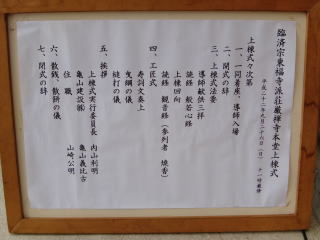 臨済宗東福寺派荘厳禅寺本堂上棟式
平成二十二年九月二十六日(日) 十一時厳修
上棟式々次第
一、一同着座 導師入場
二、開式の辞
三、上棟式法要
導師献供三拝
読経 般若心経
上棟回向
読経 観音経(参列者 焼香)
四、工匠式
寿詞文奏上
曳綱の儀
槌打の儀
五、挨拶
上棟式実行委員長 内山利明
亀山建設㈱ 亀山義比古
住職 山崎公明
六、散銭、散餅の儀
七、閉式の辞